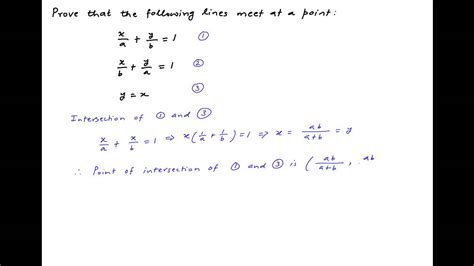 Prove that the following lines meet at a point:
x/a + y/b = 1 ①
x/b + y/a = 1 ②
y = x ③
Intersection of ① and ③
x/a + x/b = 1 ⇒ x(1/a + 1/b) = 1 ⇒ x = ab/(a+b) = y
∴ Point of intersection of ① and ③ is (ab/(a+b), ab